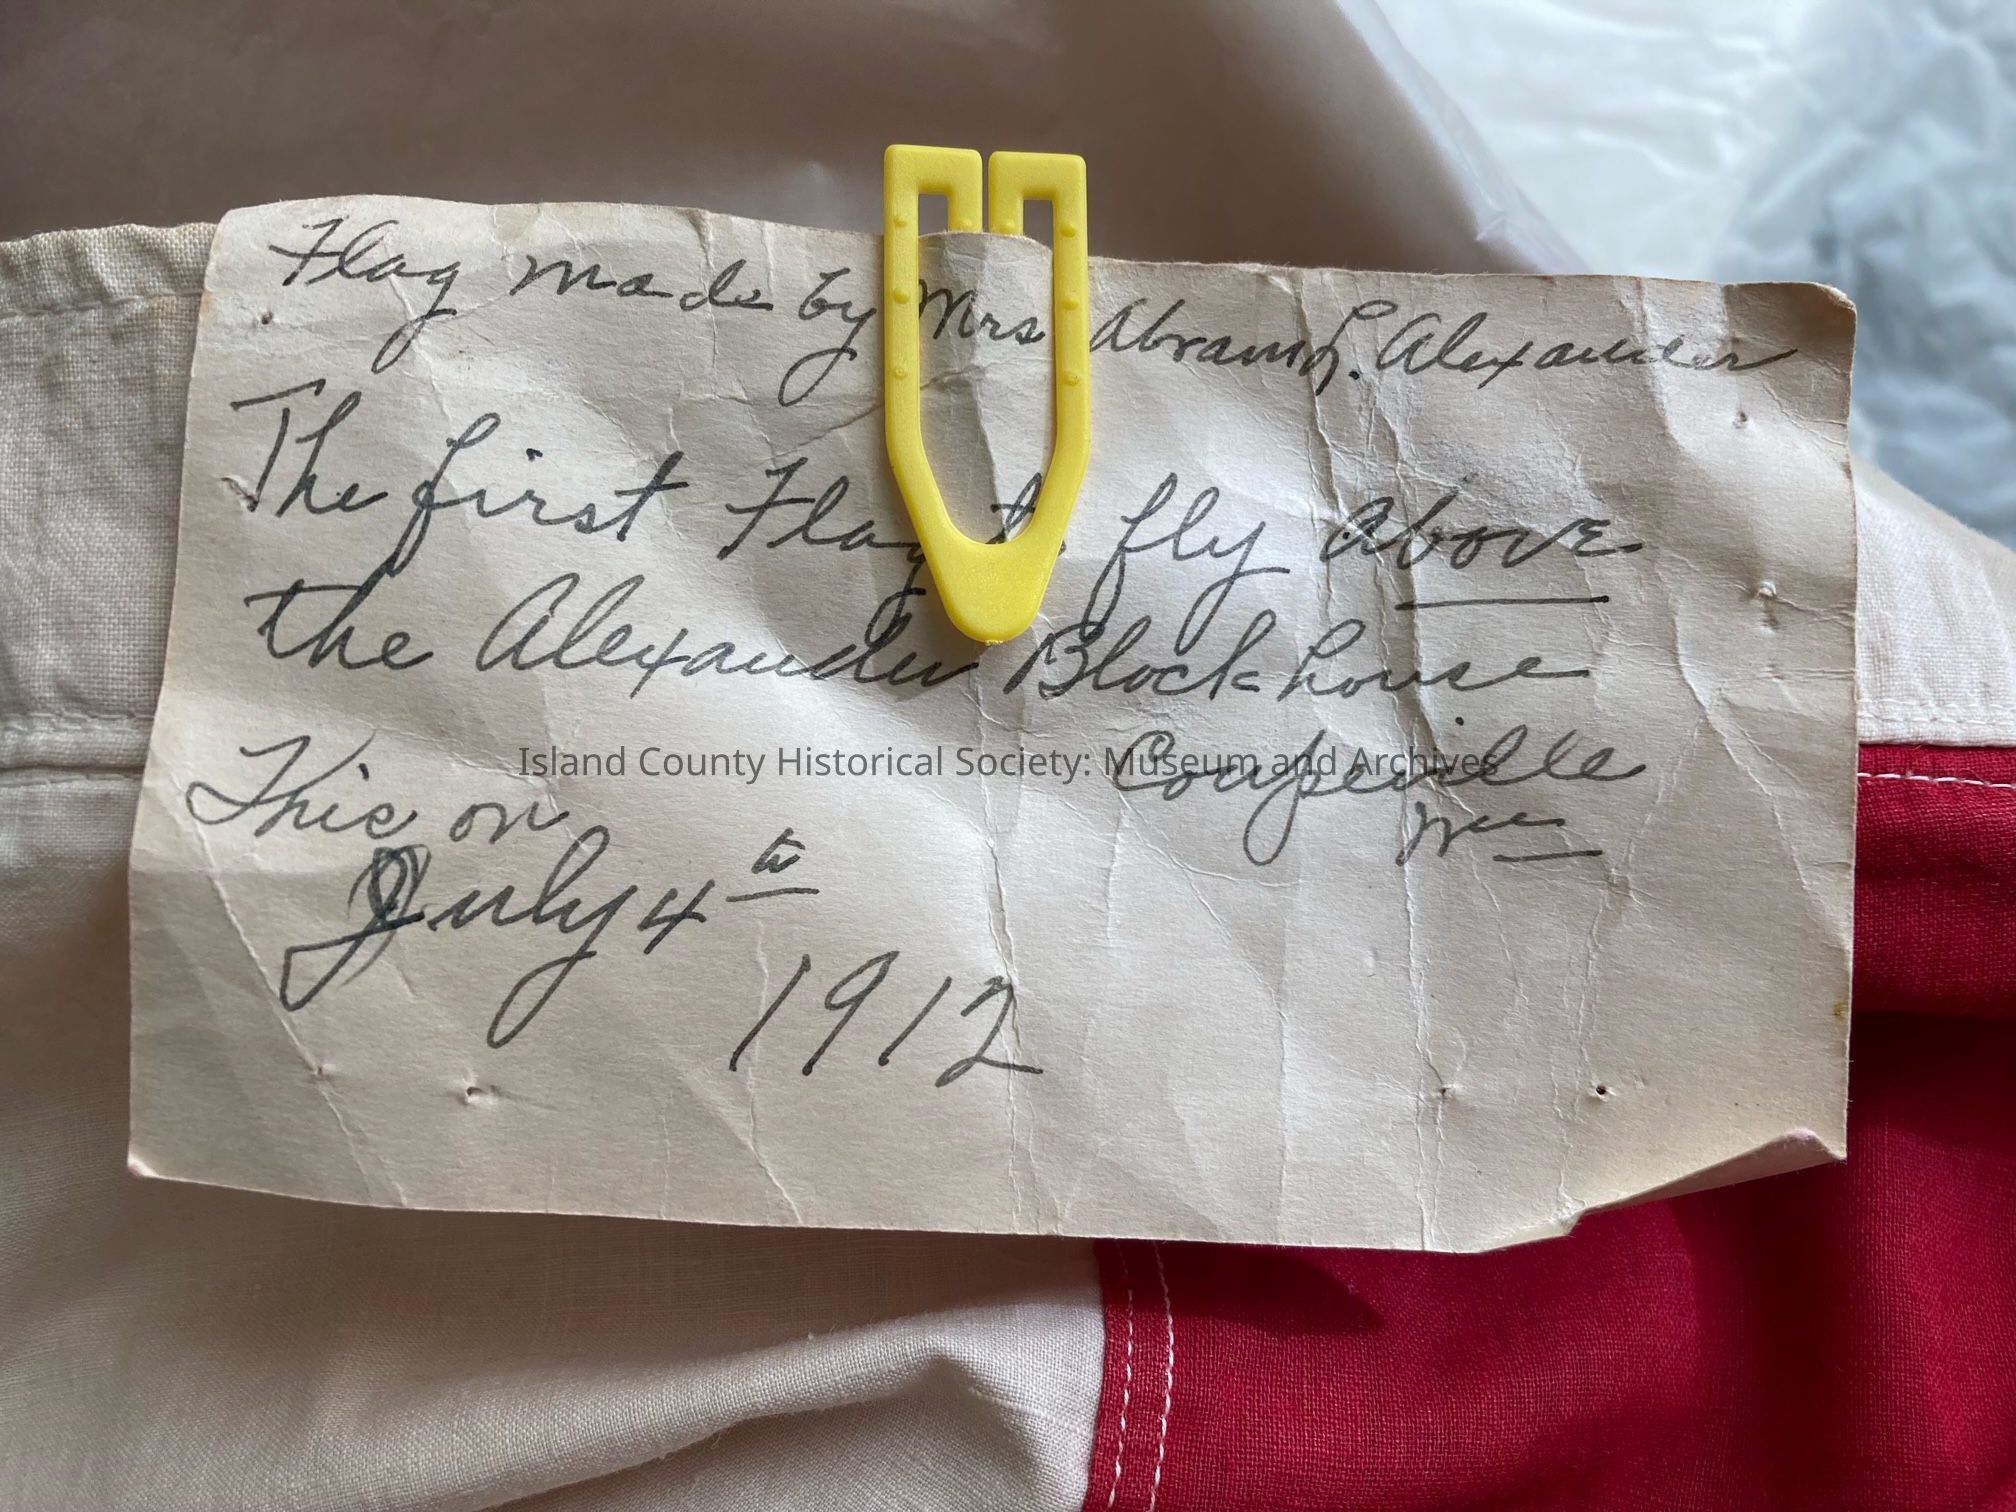 Flag made by Mrs Abram L. Alexander
The first Flag to fly above
the Alexander Blockhouse
Coupeville
This on
July 4th
1912
Island County Historical Society: Museum and Archives